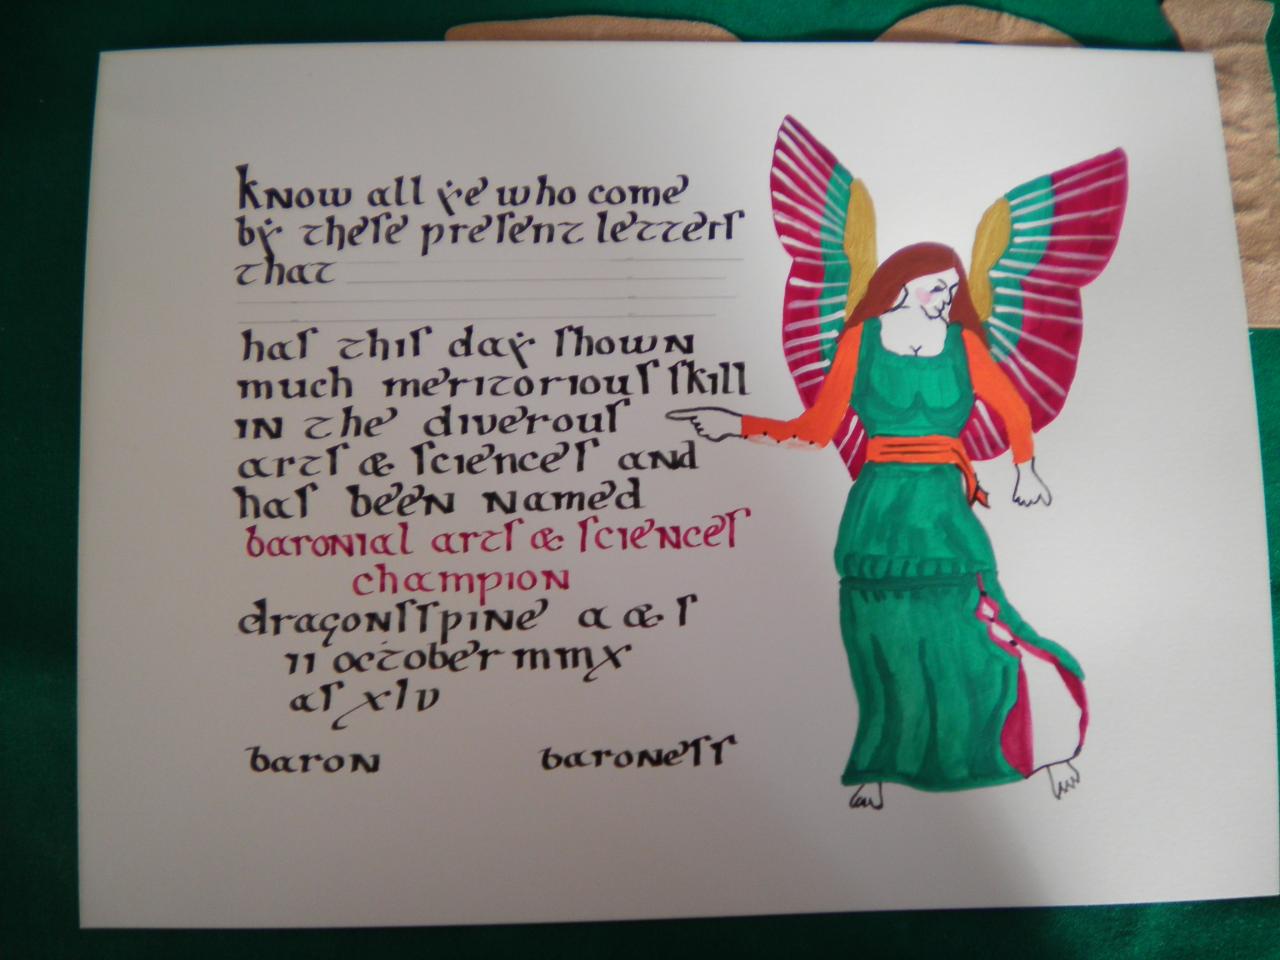 know all ye who come
by these present letters
that
has this day shown
much meritorious skill
in the diverous
arts & sciences and
has been named
baronial arts & sciences
champion
dragonsspine a & s
11 october mmx
as xlv
baron baroness